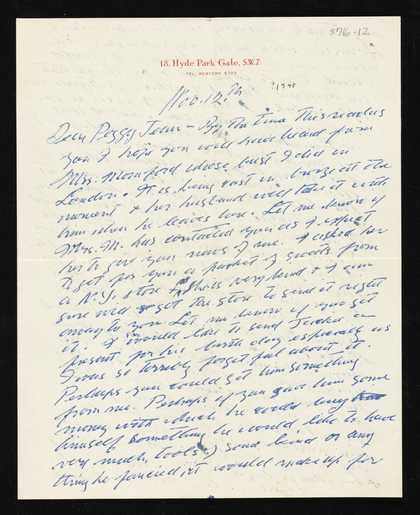 576-12
18, Hyde Park Gate, S.W.7.
TEL. WESTERN
Nov. 12th
Dear Peggy Jean - By the time this reaches
you I hope you will have heard from
Mrs. whose bust I did in
London. It is being cast in bronze at the
moment & her husband will take it with
him when he leaves here. Let me know if
Mrs. M. has contacted you as I expect
her to give you news of me. I asked her
to get for you a packet of goods from
a N.Y. store. She is very kind & I am
sure will get the store to send it right
away to you. Let me know if you get
it. I would like to send a
present for his birthday especially as
I was so forgetful about it.
Perhaps you could get him something
from me. Perhaps if you gave him some
money with which he could buy
himself something he would like to have
very much, tools some kind or any
thing he fancied, it would make up for